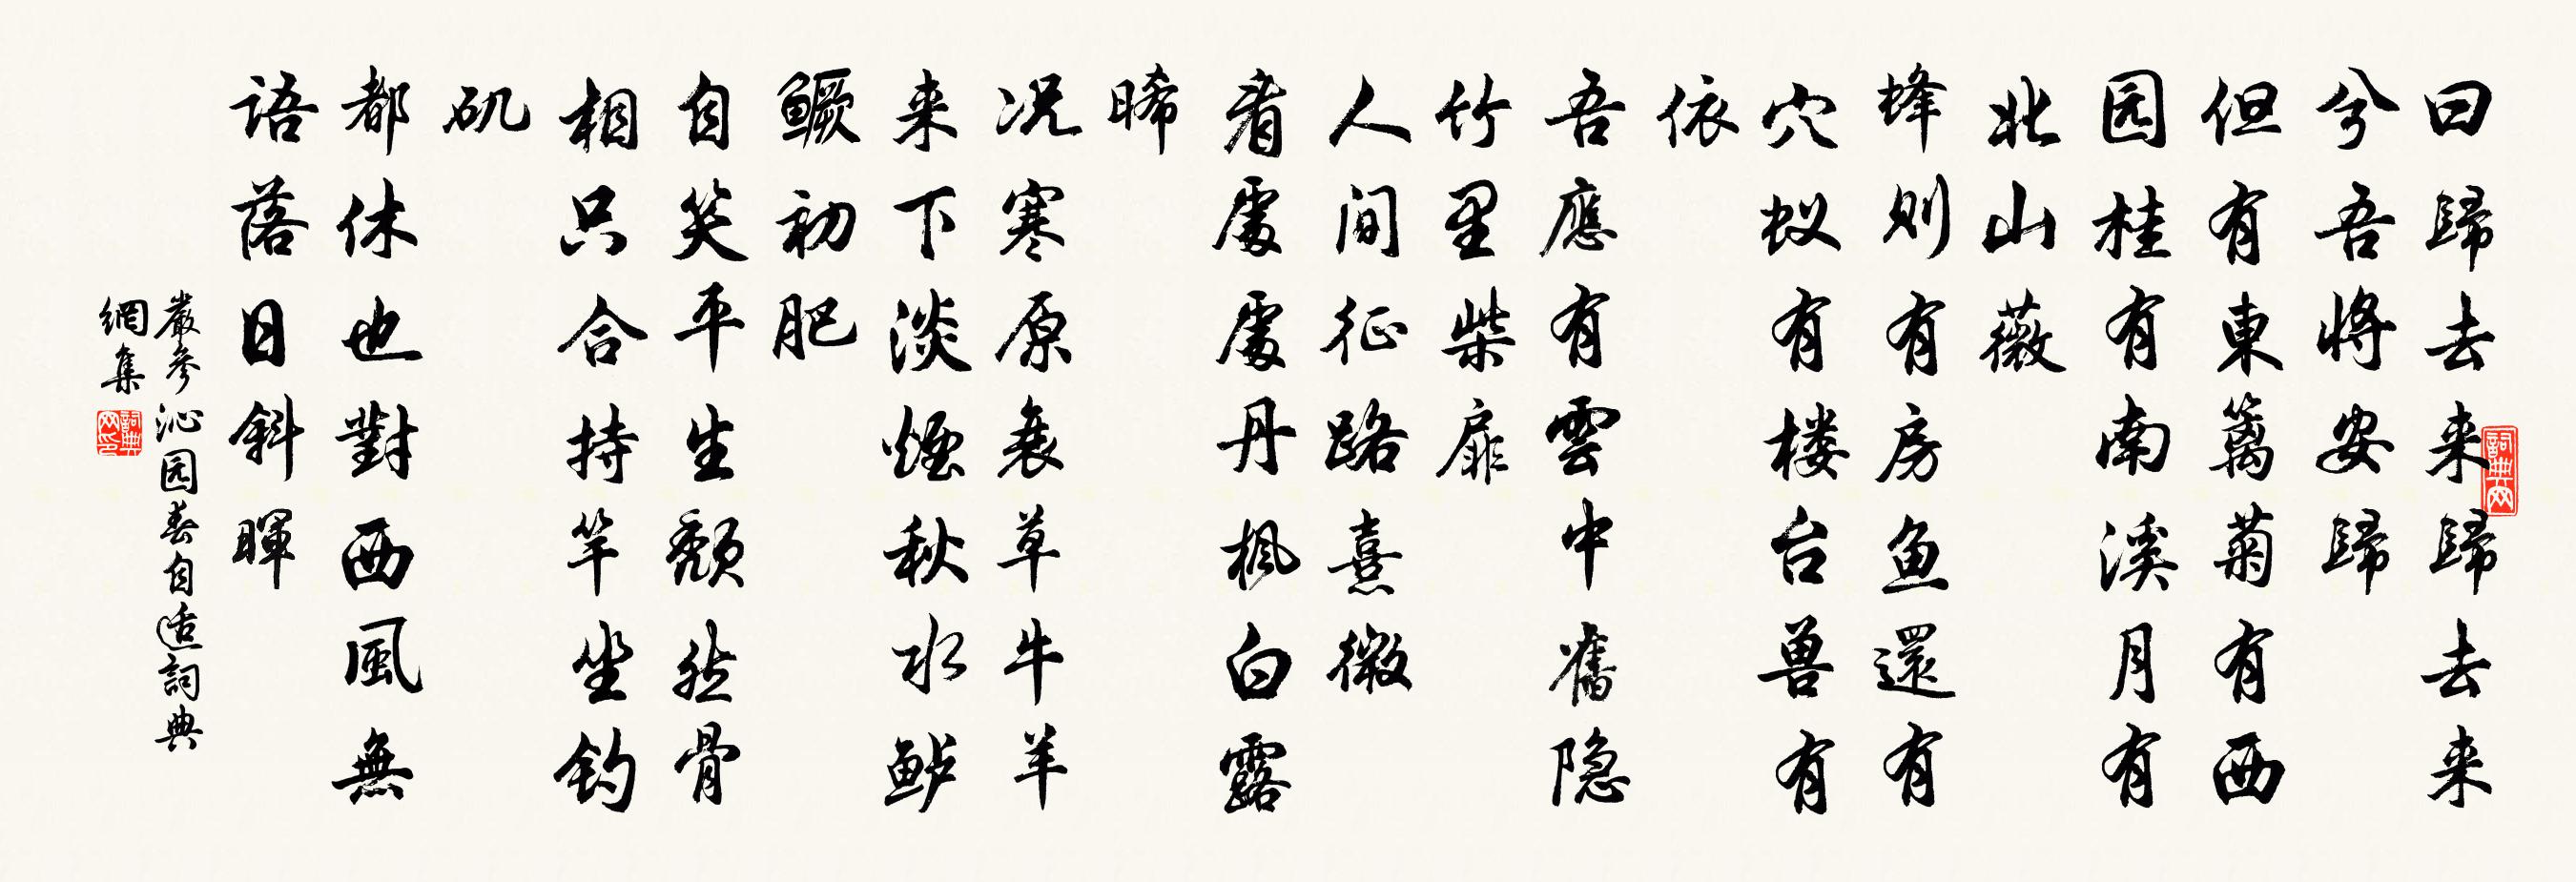 曰歸去来歸去来
兮吾将安歸
但有東篱菊有西
园桂有南溪月有
北山薇
蜂则有房鱼還有
穴蚁有楼台兽有
依
吾應有雲中舊隐
竹里柴扉
人间征路熹微
看處處丹楓白露
晞
况寒原衰草牛羊
来下淡煙秋水鲈
鳜初肥
自笑平生颓然骨
相只合持竿坐钓
矶
都休也對西風無
语落日斜暉
嚴參沁园春自适詞典
網集
詞典网
詞典网印